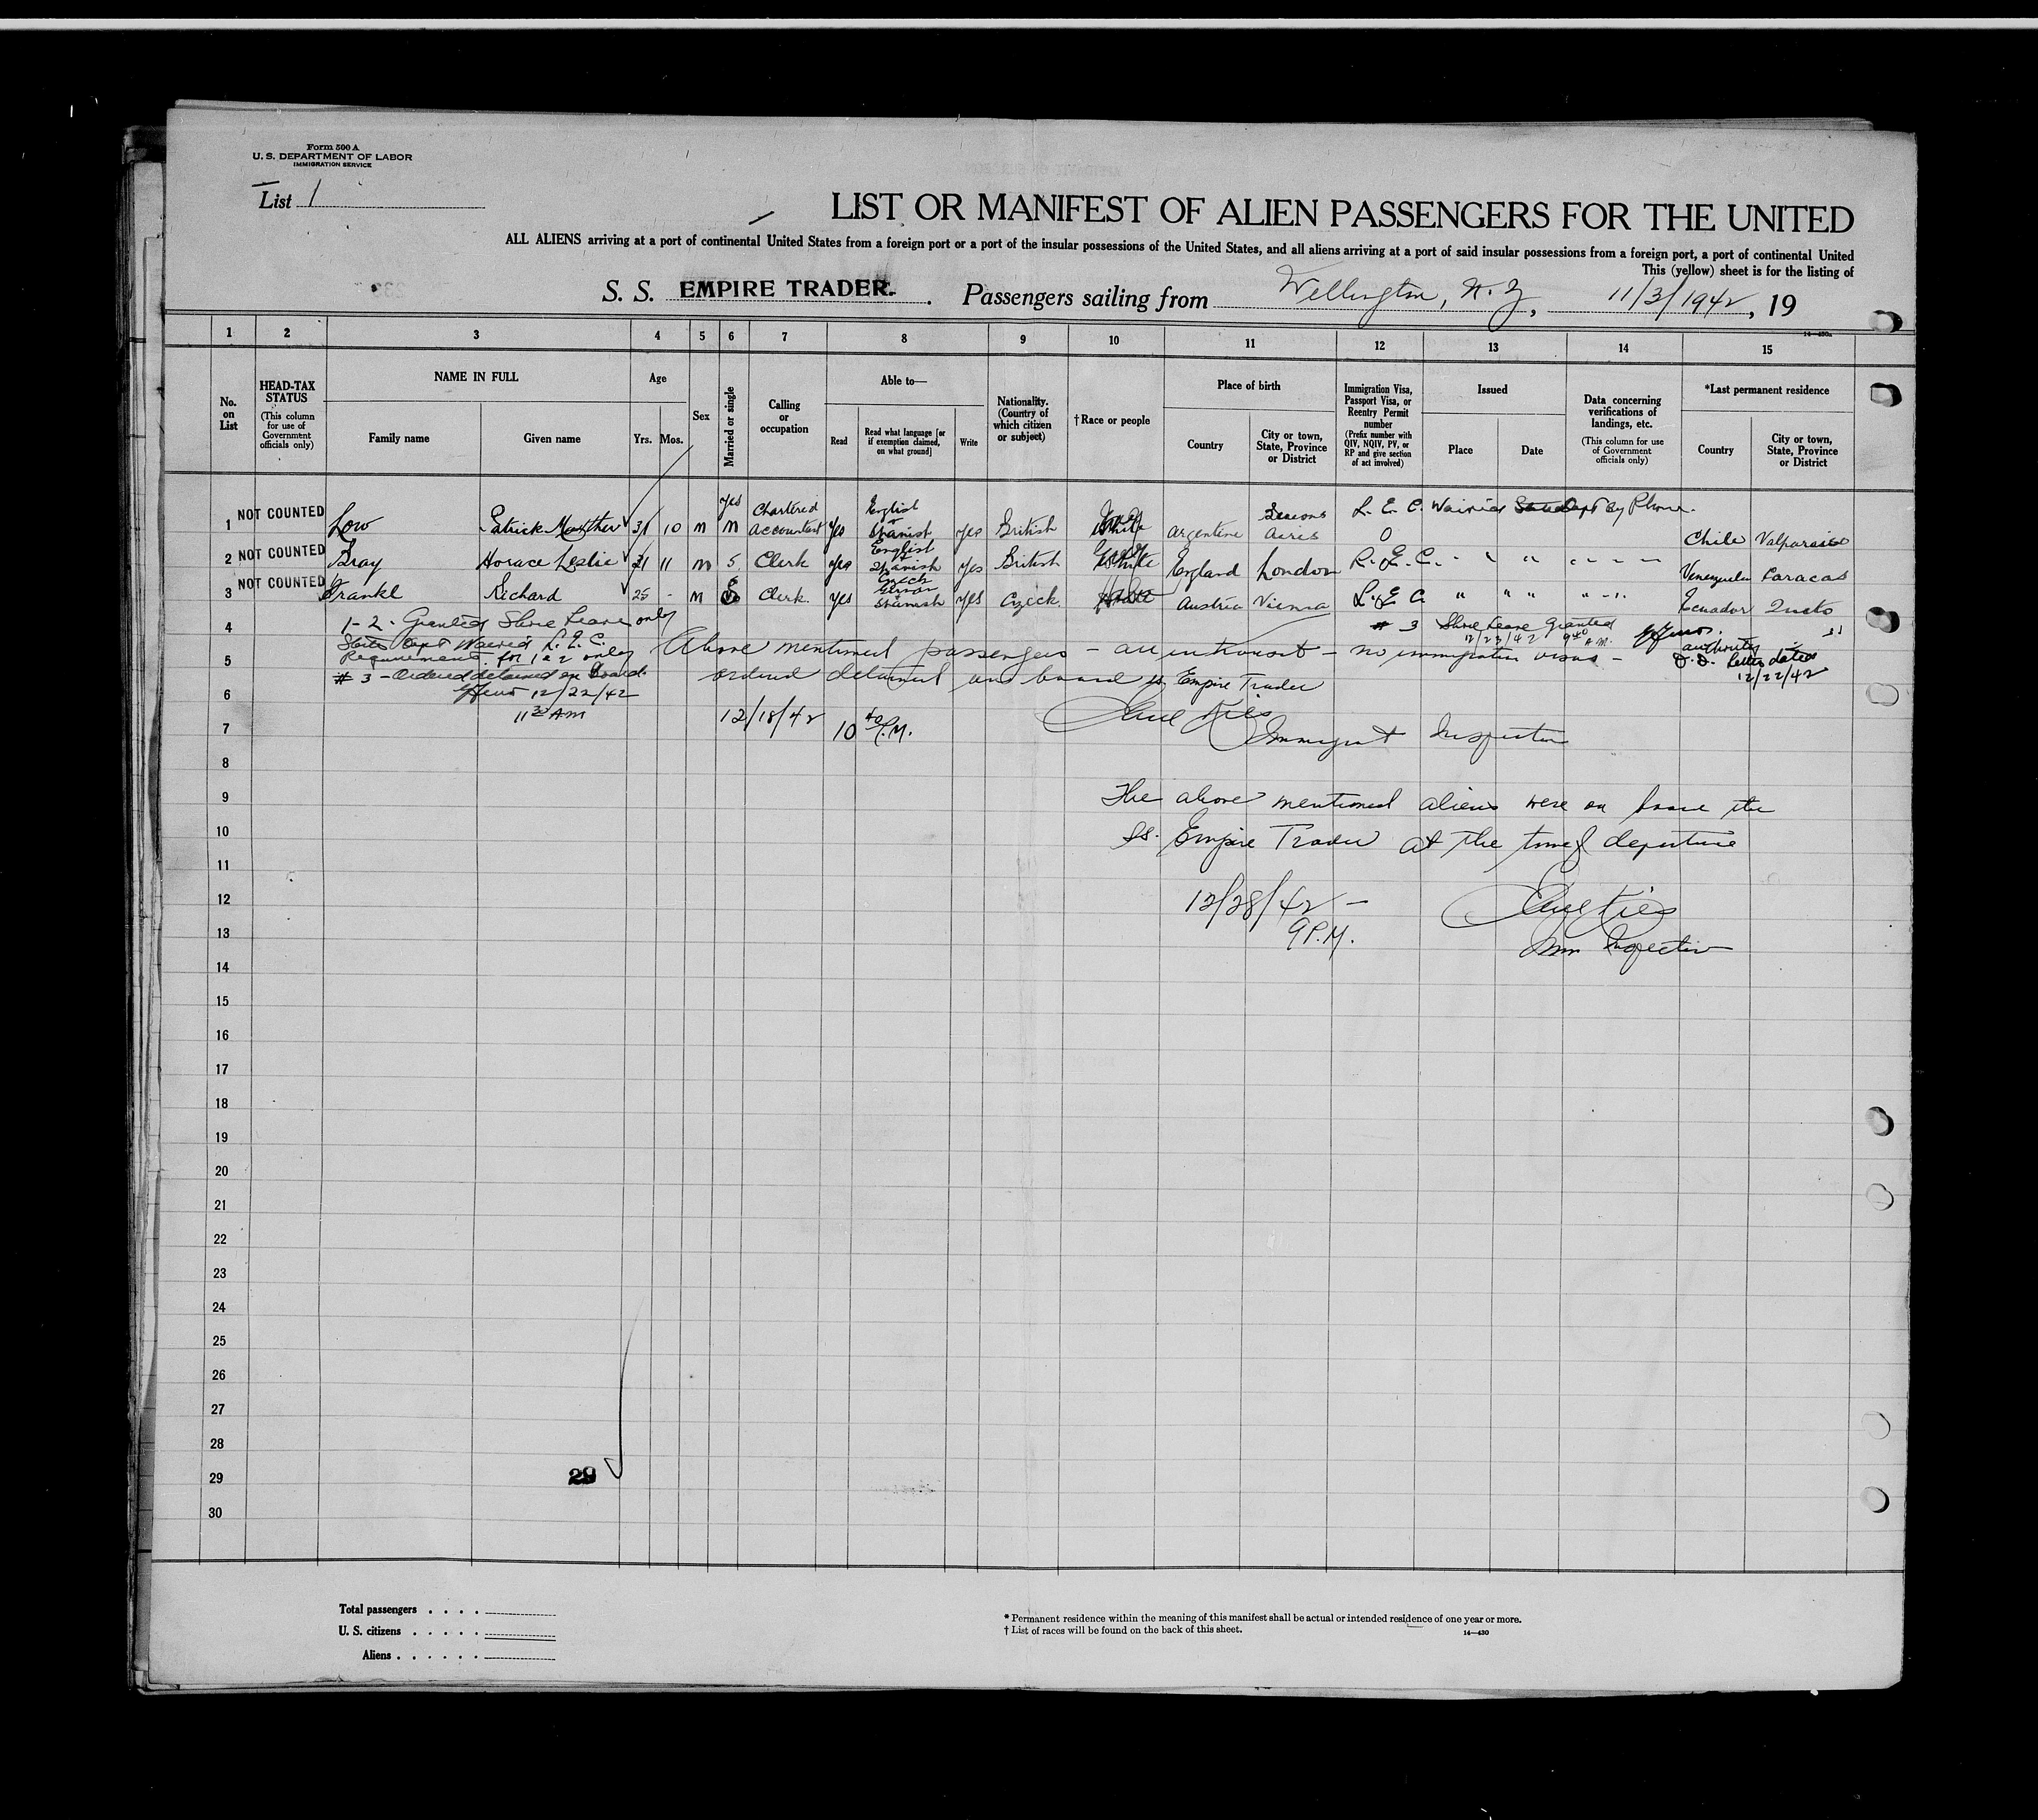 Form 500 A
U. S. DEPARTMENT OF LABOR
IMMIGRATION SERVICE
List 1
LIST OR MANIFEST OF ALIEN PASSENGERS FOR THE UNITED
ALL ALIENS arriving at a port of continental United States from a foreign port or a port of the insular possessions of the United States, and all aliens arriving at a port of said insular possessions from a foreign port, a port of continental United
This (yellow) sheet is for the listing of
S. S. EMPIRE TRADER. Passengers sailing from Wellington, N. Z, 11/3/1942, 19
14—430a
1 2 3 4 5 6 7 8 9 10 11 12 13 14 15
No. on List
HEAD-TAX STATUS
(This column for use of Government officials only)
NAME IN FULL
Family name
Given name
Age
Yrs. Mos.
Sex
Married or single
Calling or occupation
Able to—
Read
Read what language [or if exemption claimed, on what ground]
Write
Nationality. (Country of which citizen or subject)
†Race or people
Place of birth
Country
City or town, State, Province or District
Immigration Visa, Passport Visa, or Reentry Permit number
(Prefix number with QIV, NQIV, PV, or RP and give section of act involved)
Issued
Place
Date
Data concerning verifications of landings, etc.
(This column for use of Government officials only)
*Last permanent residence
Country
City or town, State, Province or District
1 NOT COUNTED Low Patrick 31 10 M M yes Chartered accountant yes English Spanish yes British White Argentine Aires L. E. C. Waived State Dept By Phone. Chile Valparaiso
2 NOT COUNTED Gray Horace Leslie 21 11 M S. Clerk yes English Spanish yes British White England London L. E. C. " " " Venezuela Caracas
3 NOT COUNTED Frankl Richard 25 - M S Clerk. yes Czech German Spanish yes Czech. Austria Vienna L. E C. " " " " - ". Ecuador Quito
4 1-2. Granted Shore Leave only
# 3 Shore Leave Granted
12/23/42 9 40 A.M.
State Dept Waived L. E. C.
Requirement for 1 & 2 only
authority
D. D. letter dated
12/22/42
5 Above mentioned passengers - all intransit - no immigration visas -
# 3 - Ordered detained on board.
ordered detained on board ss Empire Trader
6 12/22/42
11 30 AM
12/18/42 10 40 P.M.
7 Immigrant Inspector
8
9 The above mentioned aliens were on board the
10 ss. Empire Trader at the time of departure
11
12 12/28/42 -
13 9 P.M.
Imm Inspector
14
15
16
17
18
19
20
21
22
23
24
25
26
27
28
29 29
30
Total passengers . . . .
U. S. citizens . . . . .
Aliens . . . . . .
* Permanent residence within the meaning of this manifest shall be actual or intended residence of one year or more.
† List of races will be found on the back of this sheet.
14—430